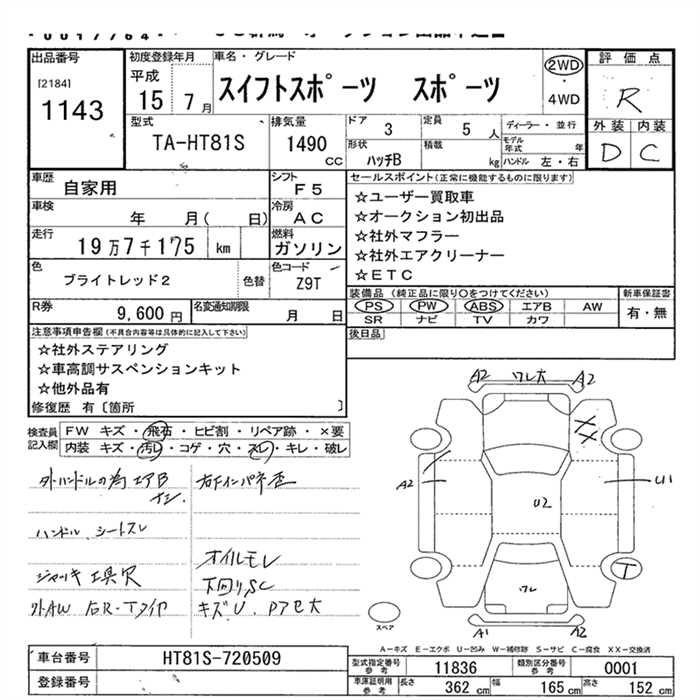 出品番号
[2184]
1143
初度登録年月
平成
15年 7月
車名・グレード
スイフトスポーツ スポーツ
2WD
・
4WD
評価点
R
外装 内装
D C
型式
TA-HT81S
排気量
1490
CC
ドア 3
定員 5 人
形状 ハッチB
積載 kg
ディーラー・並行
モデル年式 年
ハンドル 左・右
車歴 自家用
シフト F5
車検 年 月( 日)
冷房 AC
走行 19万7千175 km
燃料 ガソリン
色 ブライトレッド2 色替
色コード Z9T
R券 9,600円
名変通知期限 月 日
セールスポイント(正常に機能するものに限ります)
☆ユーザー買取車
☆オークション初出品
☆社外マフラー
☆社外エアクリーナー
☆ETC
装備品(純正品に限り○をつけてください)
PS PW ABS エアB AW
SR ナビ TV カワ
新車保証書
有・無
後日品
注意事項申告欄(不具合内容等は具体的に記入して下さい)
☆社外ステアリング
☆車高調サスペンションキット
☆他外品有
修復歴 有〔箇所 〕
検査員記入欄
FW キズ・飛石・ヒビ割・リペア跡・×要
内装 キズ・汚レ・コゲ・穴・スレ・キレ・破レ
外ハンドルの為エアB
ナシ
右下インパネ歪
ハンドル、シートスレ
オイルモレ
ジャッキ工具欠
下回りSC
外AW 右R-Tタイヤ
キズU、Pアセ大
A2 ワレ大 A2
XX
A2
U2
U1
ワレ
T
スペア
A1 A2
A-キズ E-エクボ U-凹み W-補修跡 S-サビ C-腐食 XX-交換済
車台番号 HT81S-720509
登録番号
型式指定番号 参考 11836
類別区分番号 参考 0001
車庫証明用 参考 長さ 362 cm 幅 165 cm 高さ 152 cm